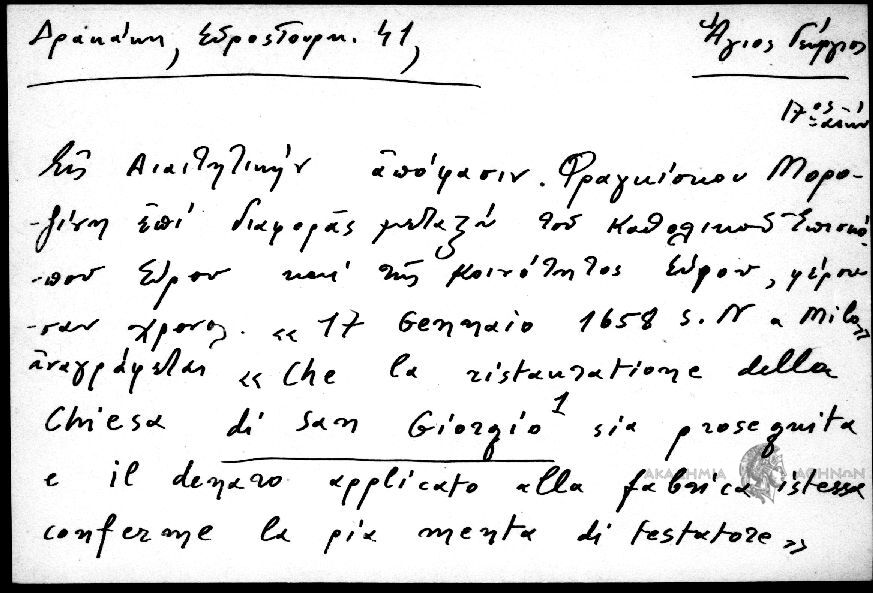 Δρακάκη, Σύρος Τουρκ. 41,
Ἅγιος Γεώργιος
17ος αἰών
Εἰς Διαιτητικὴν ἀπόφασιν Φραγκίσκου Μορο-
-ζίνη ἐπὶ διαφορᾶς μεταξὺ τοῦ Καθολικοῦ Ἐπισκό-
-που Σύρου καὶ τῆς Κοινότητος Σύρου, φέρου-
-σαν χρονολ. « 17 Gennaio 1658 S. N a Milo»
ἀναγράφεται « Che la ristauratione della
Chiesa di San Giorgio¹ sia proseguita
e il denaro applicato alla fabrica istessa
conferme la pia menta di testatore»
ΑΚΑΔΗΜΙΑ ΑΘΗΝΩΝ